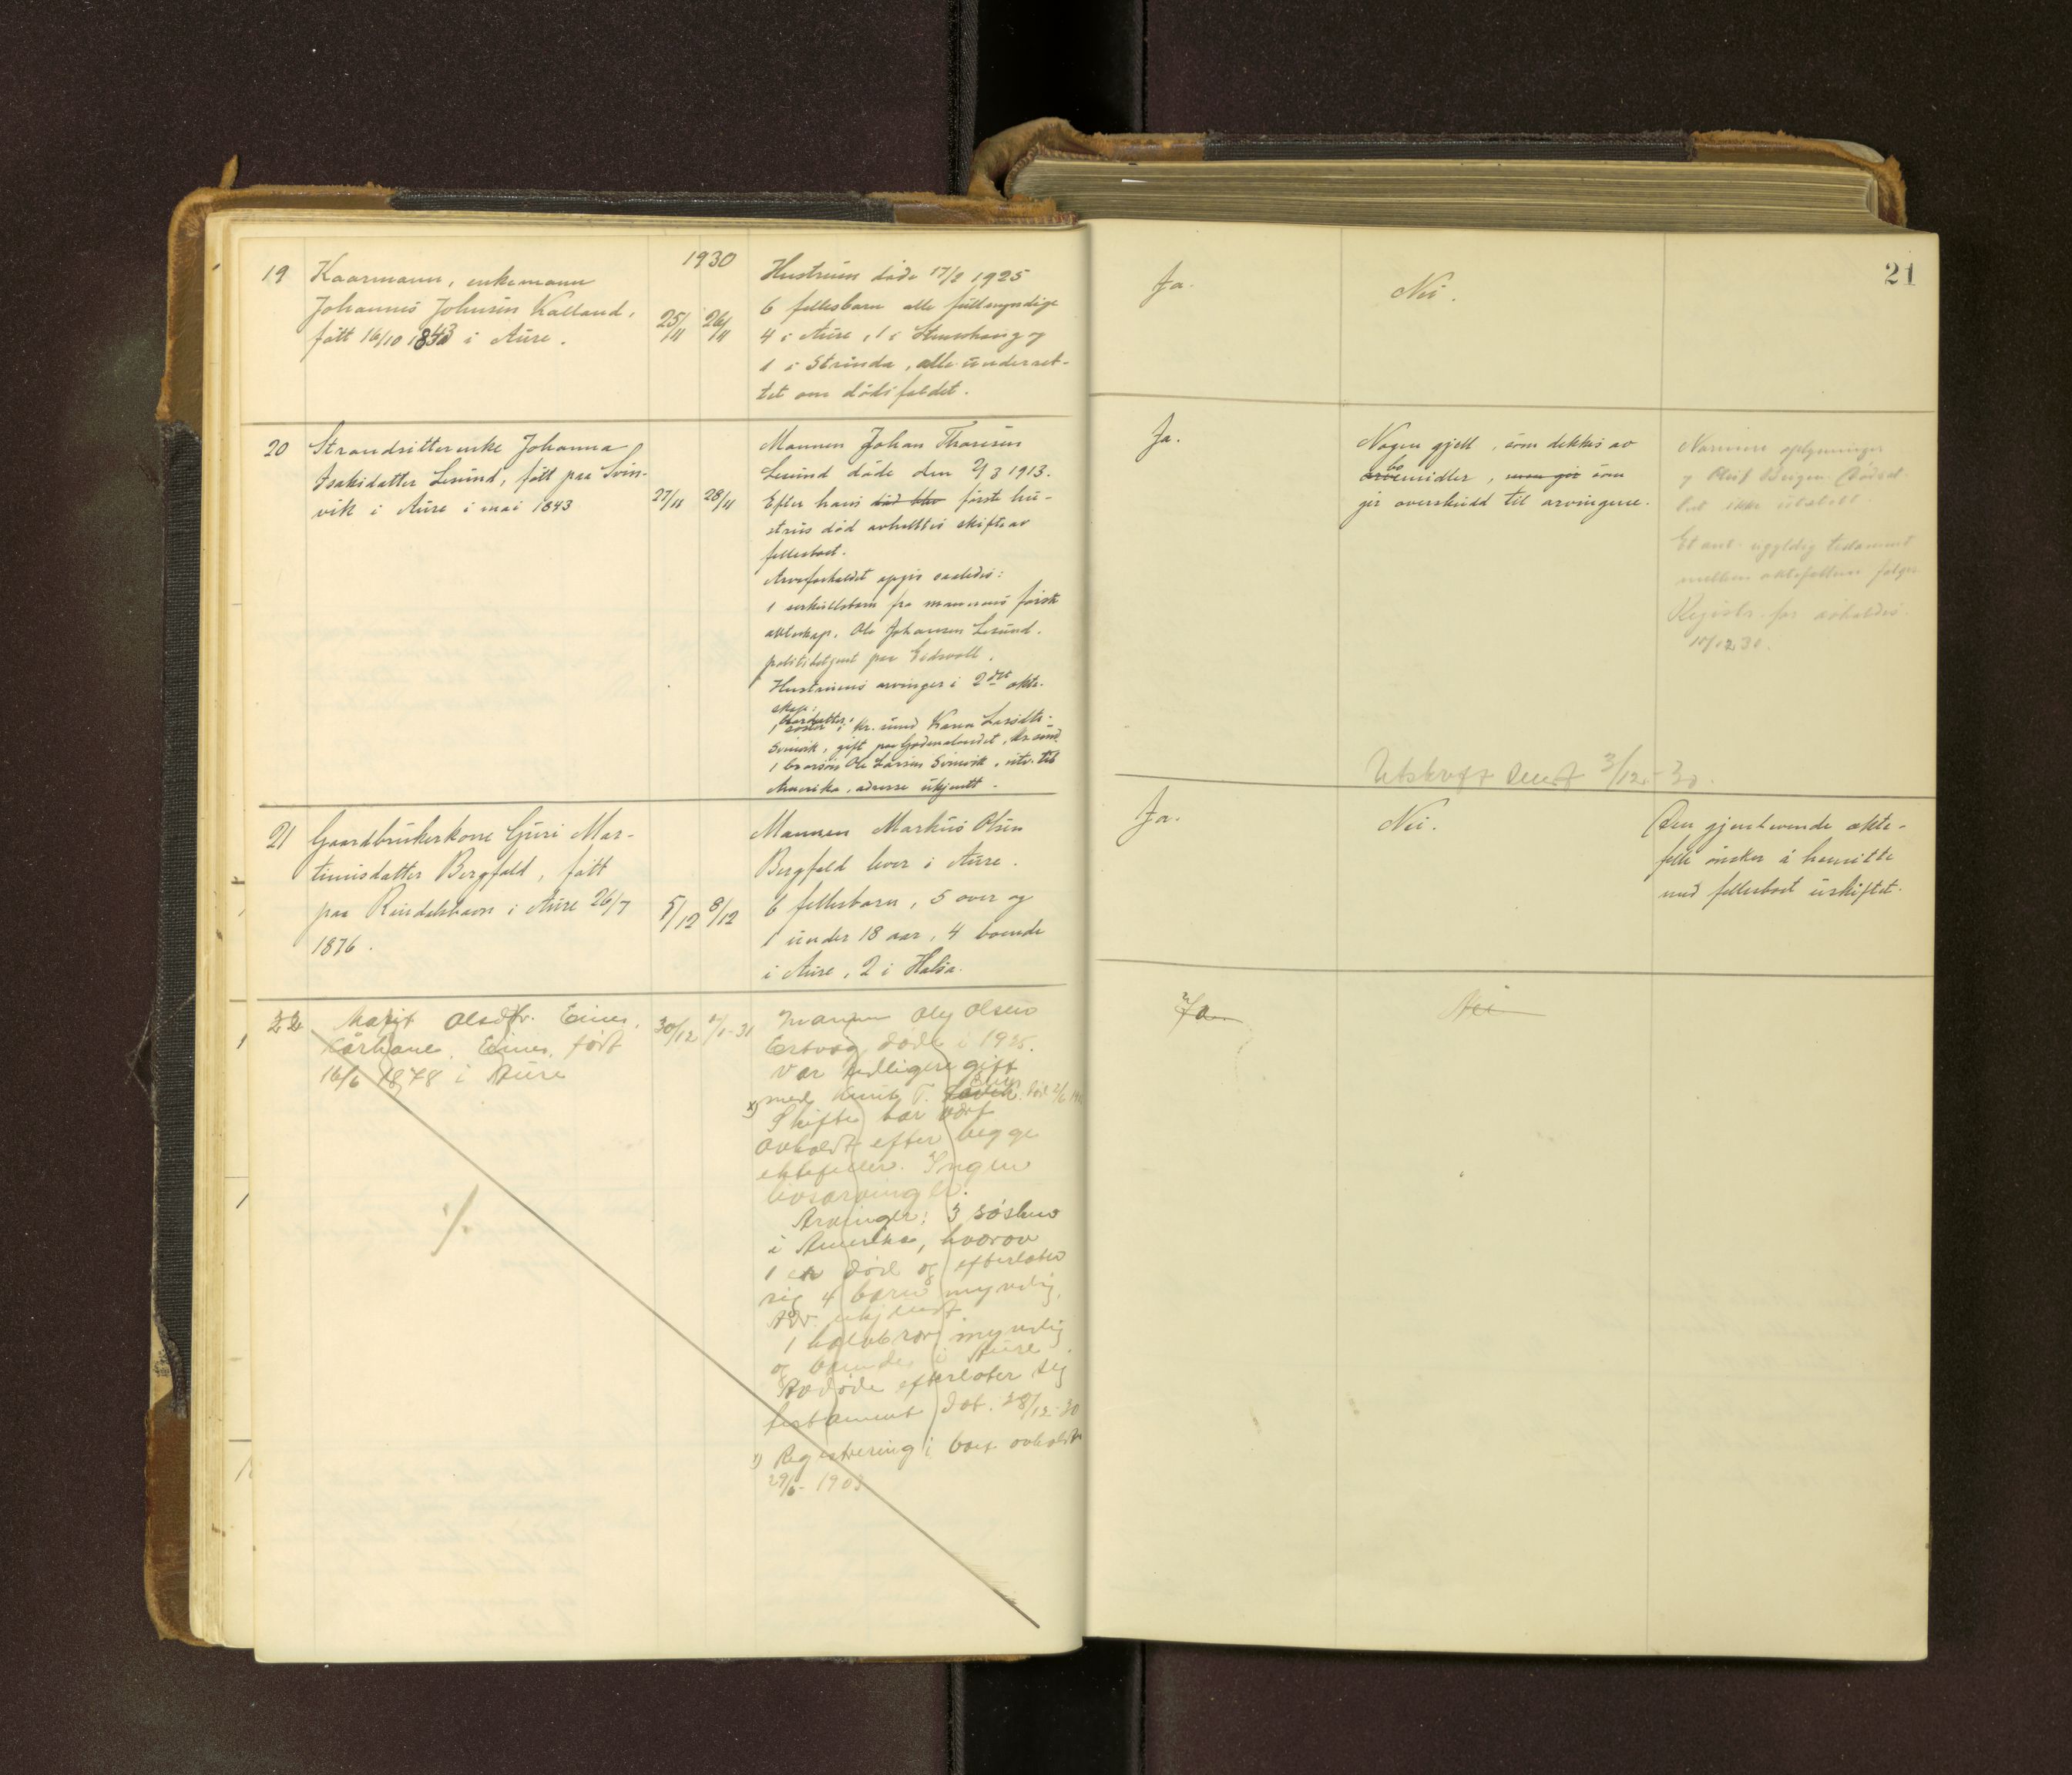 21
1930
19 Kaarmann, enkemann
Johannes Johnsen Kalland,
født 16/10 1843 i Aure.
25/11 26/11
Hustruen døde 17/2 1925
6 fellesbarn alle fullmyndige
4 i Aure, 1 i
1 i Strinda, alle underret-
tet om dødsfaldet.
Ja.
Nei.
20 Strandsitterenke Johanna
Isaksdatter Lesund, født paa Svin-
vik i Aure i mai 1843
27/11 28/11
Mannen Johan Lesund døde den 2/3 1913.
Efter hans død blev første hu-
strus død avholdtes skifte av
fellesboet.
Arveforholdet opgis saaledes:
1 særkullsbarn fra mannens første
ekteskap, Ole Johansen Lesund,
politibetjent paa Eidsvoll.
Hustruens arvinger i 2det ekte-
skap:
1 brordatter i Kr.sund Karen
Svinvik, gift paa Kr.sund
1 brorsøn Ole Larsen Svinvik, utv. til
Amerika, adresse ukjent.
Ja.
Nogen gjeld, som dekkes av
bomidler, men gir som
gir overskudd til arvingene.
Nærmere oplysninger
ikke
Et ugyldig testament
mellem ektefellene følger
Registr. avholdes
15/12 30.
Utskrift sendt 3/12-30.
21 Gaardbrukerkone Guri Mar-
tinusdatter Bergfald, født
paa Rendalshavn i Aure 26/7
1876.
5/12 8/12
Mannen Markus Olsen
Bergfald lever i Aure.
6 fellesbarn, 5 over og
1 under 18 aar, 4 boende
i Aure, 2 i Halsa.
Ja.
Nei.
Den gjenlevende ekte-
felle ønsker å hensitte
med fellesboet uskiftet.
22 Marit Olsdtr. Eines,
Kårkone, Eines, født
16/6 1878 i Aure
30/12 2/1-31
Mannen Ole Olsen
Ertvåg døde i 1925.
Var tidligere gift
x) med
Skifte har vært
avholdt efter begge
ektefeller. Ingen
livsarvinger.
Arvinger: 3 søsken
i Amerika, hvorav
1 er død og efterlater
sig 4 barn myndig,
Adr. ukjendt
1 halvbror, myndig
og boende i Aure.
Avdøde efterlater sig
testament dat. 28/12-30
x) Registrering i boet avholdt
29/6-1903
./.
Ja
Nei